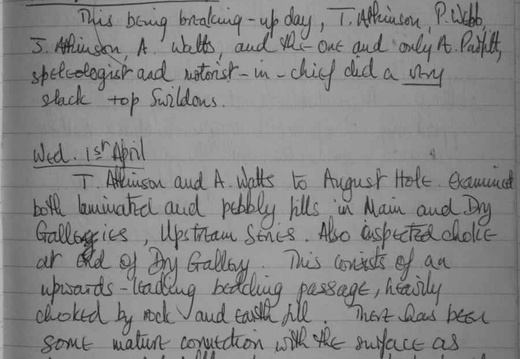 This being breaking-up day, T. Atkinson, P. Webb,
J. Atkinson, A. Watts, and the one and only A. Pavitt,
speleologist and motorist-in-chief did a very
slack top Swildons.
Wed. 1st April
T. Atkinson and A. Watts to August Hole. Examined
both laminated and pebbly fills in Main and Dry
Galleries, Upstream Series. Also inspected choke
at end of Dry Gallery. This consists of an
upwards-leading bedding passage, heavily
choked by rock and earth fill. There has been
some mature connection with the surface as